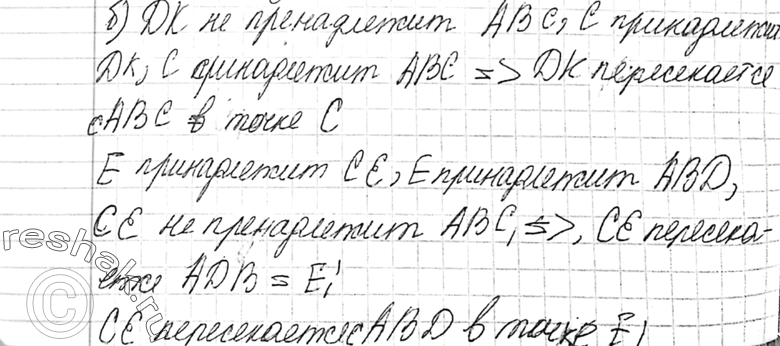 б) DK не пренадлежит ABC, C принадлежи
DK, C принадлежит ABC => DK пересекается
с ABC в точке C
E принадлежит CE, E принадлежит ABD,
CE не пренадлежит ABC, =>, CE пересека-
ется ADB = E,
CE пересекается с ABD в точке E
reshak.ru
©